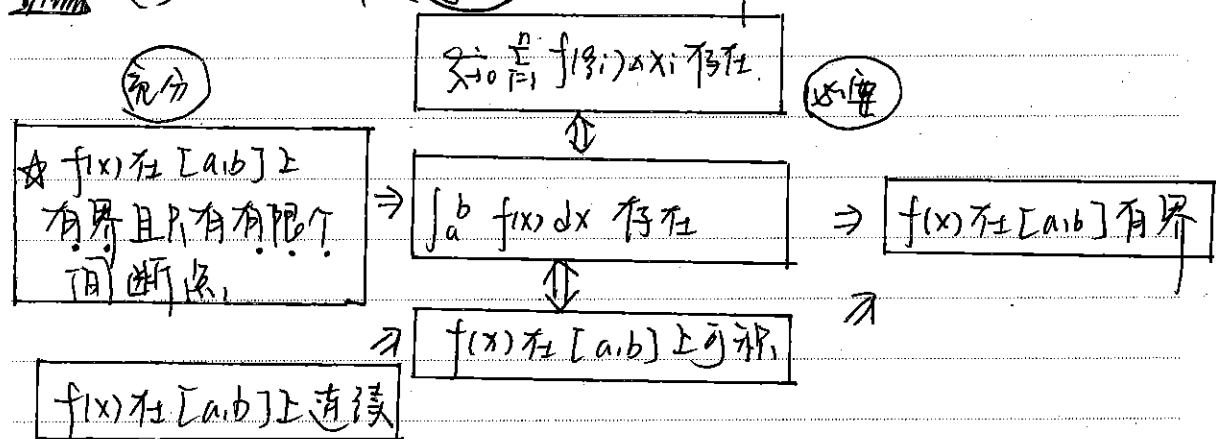 lim λ→0 n∑i=1 f(ξi)Δxi 存在.
充分
必要
☆ f(x)在[a,b]上
有界且只有有限个
间断点,
⇒
⇕
∫ab f(x)dx 存在
⇒
f(x)在[a,b]有界
⇕
f(x)在[a,b]上可积,
f(x)在[a,b]上连续